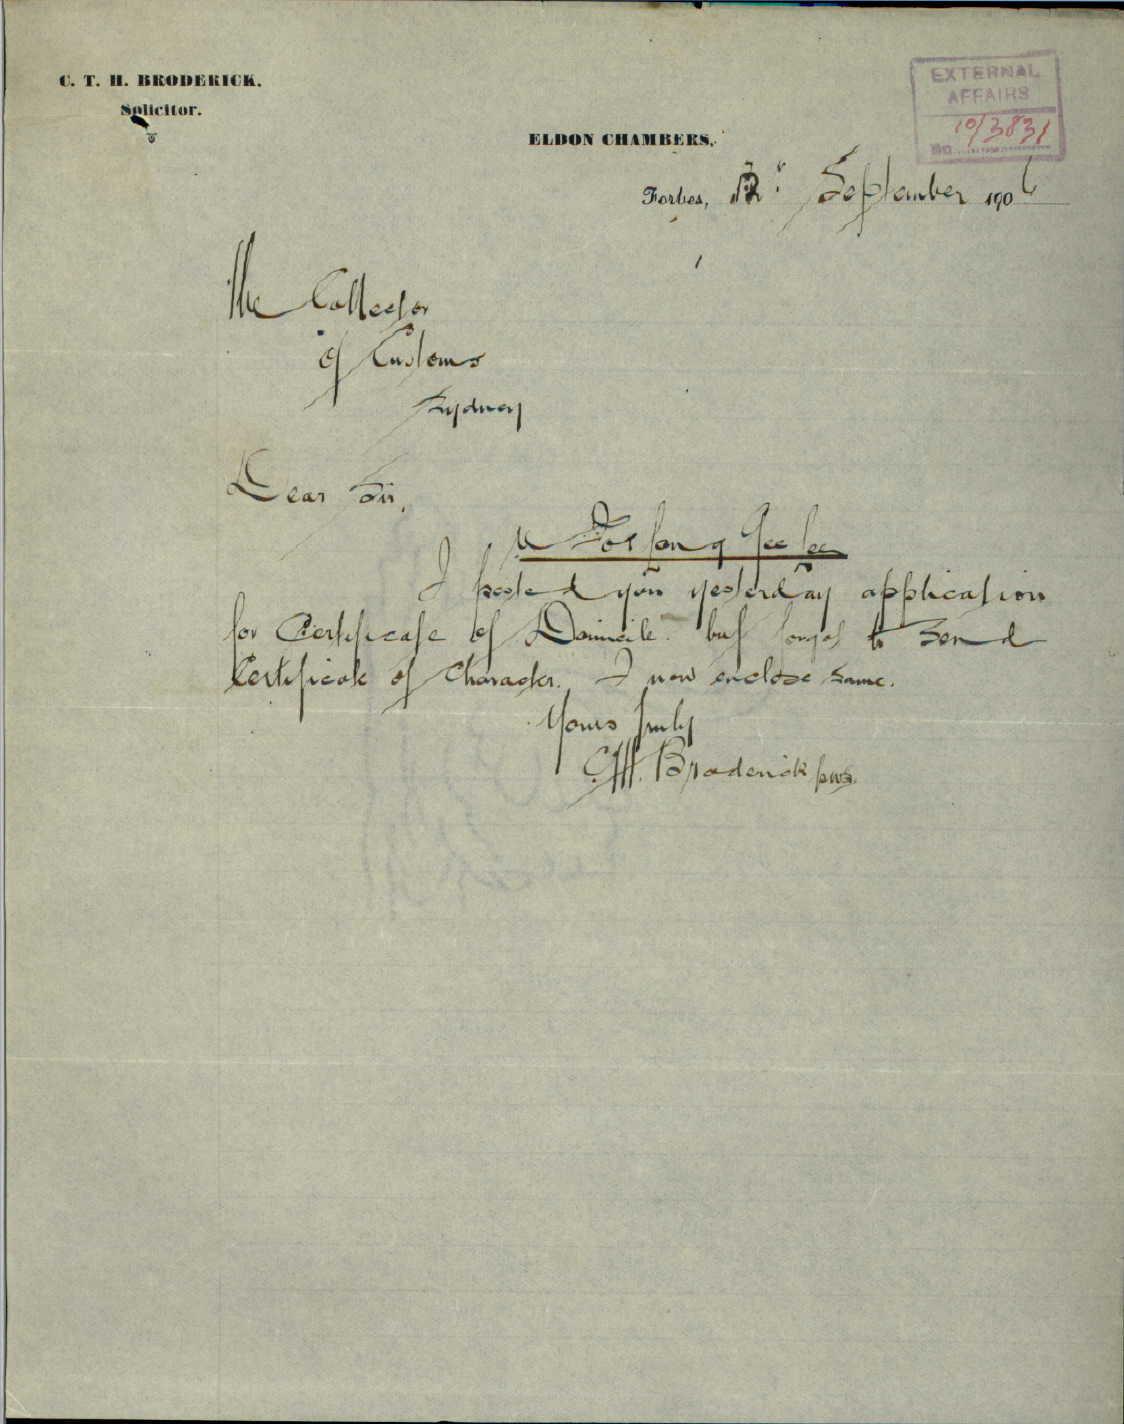 C. T. H. BRODERICK.
Solicitor.
EXTERNAL
AFFAIRS
No. 10/3831
ELDON CHAMBERS,
Forbes, September 1906
The Collector
of Customs
Sydney
Dear Sir,
Gee Lee
I posted you yesterday application
for Certificate of Domicile but forgot to send
Certificate of Character. I now enclose same.
Yours truly
C.T.H. Broderick